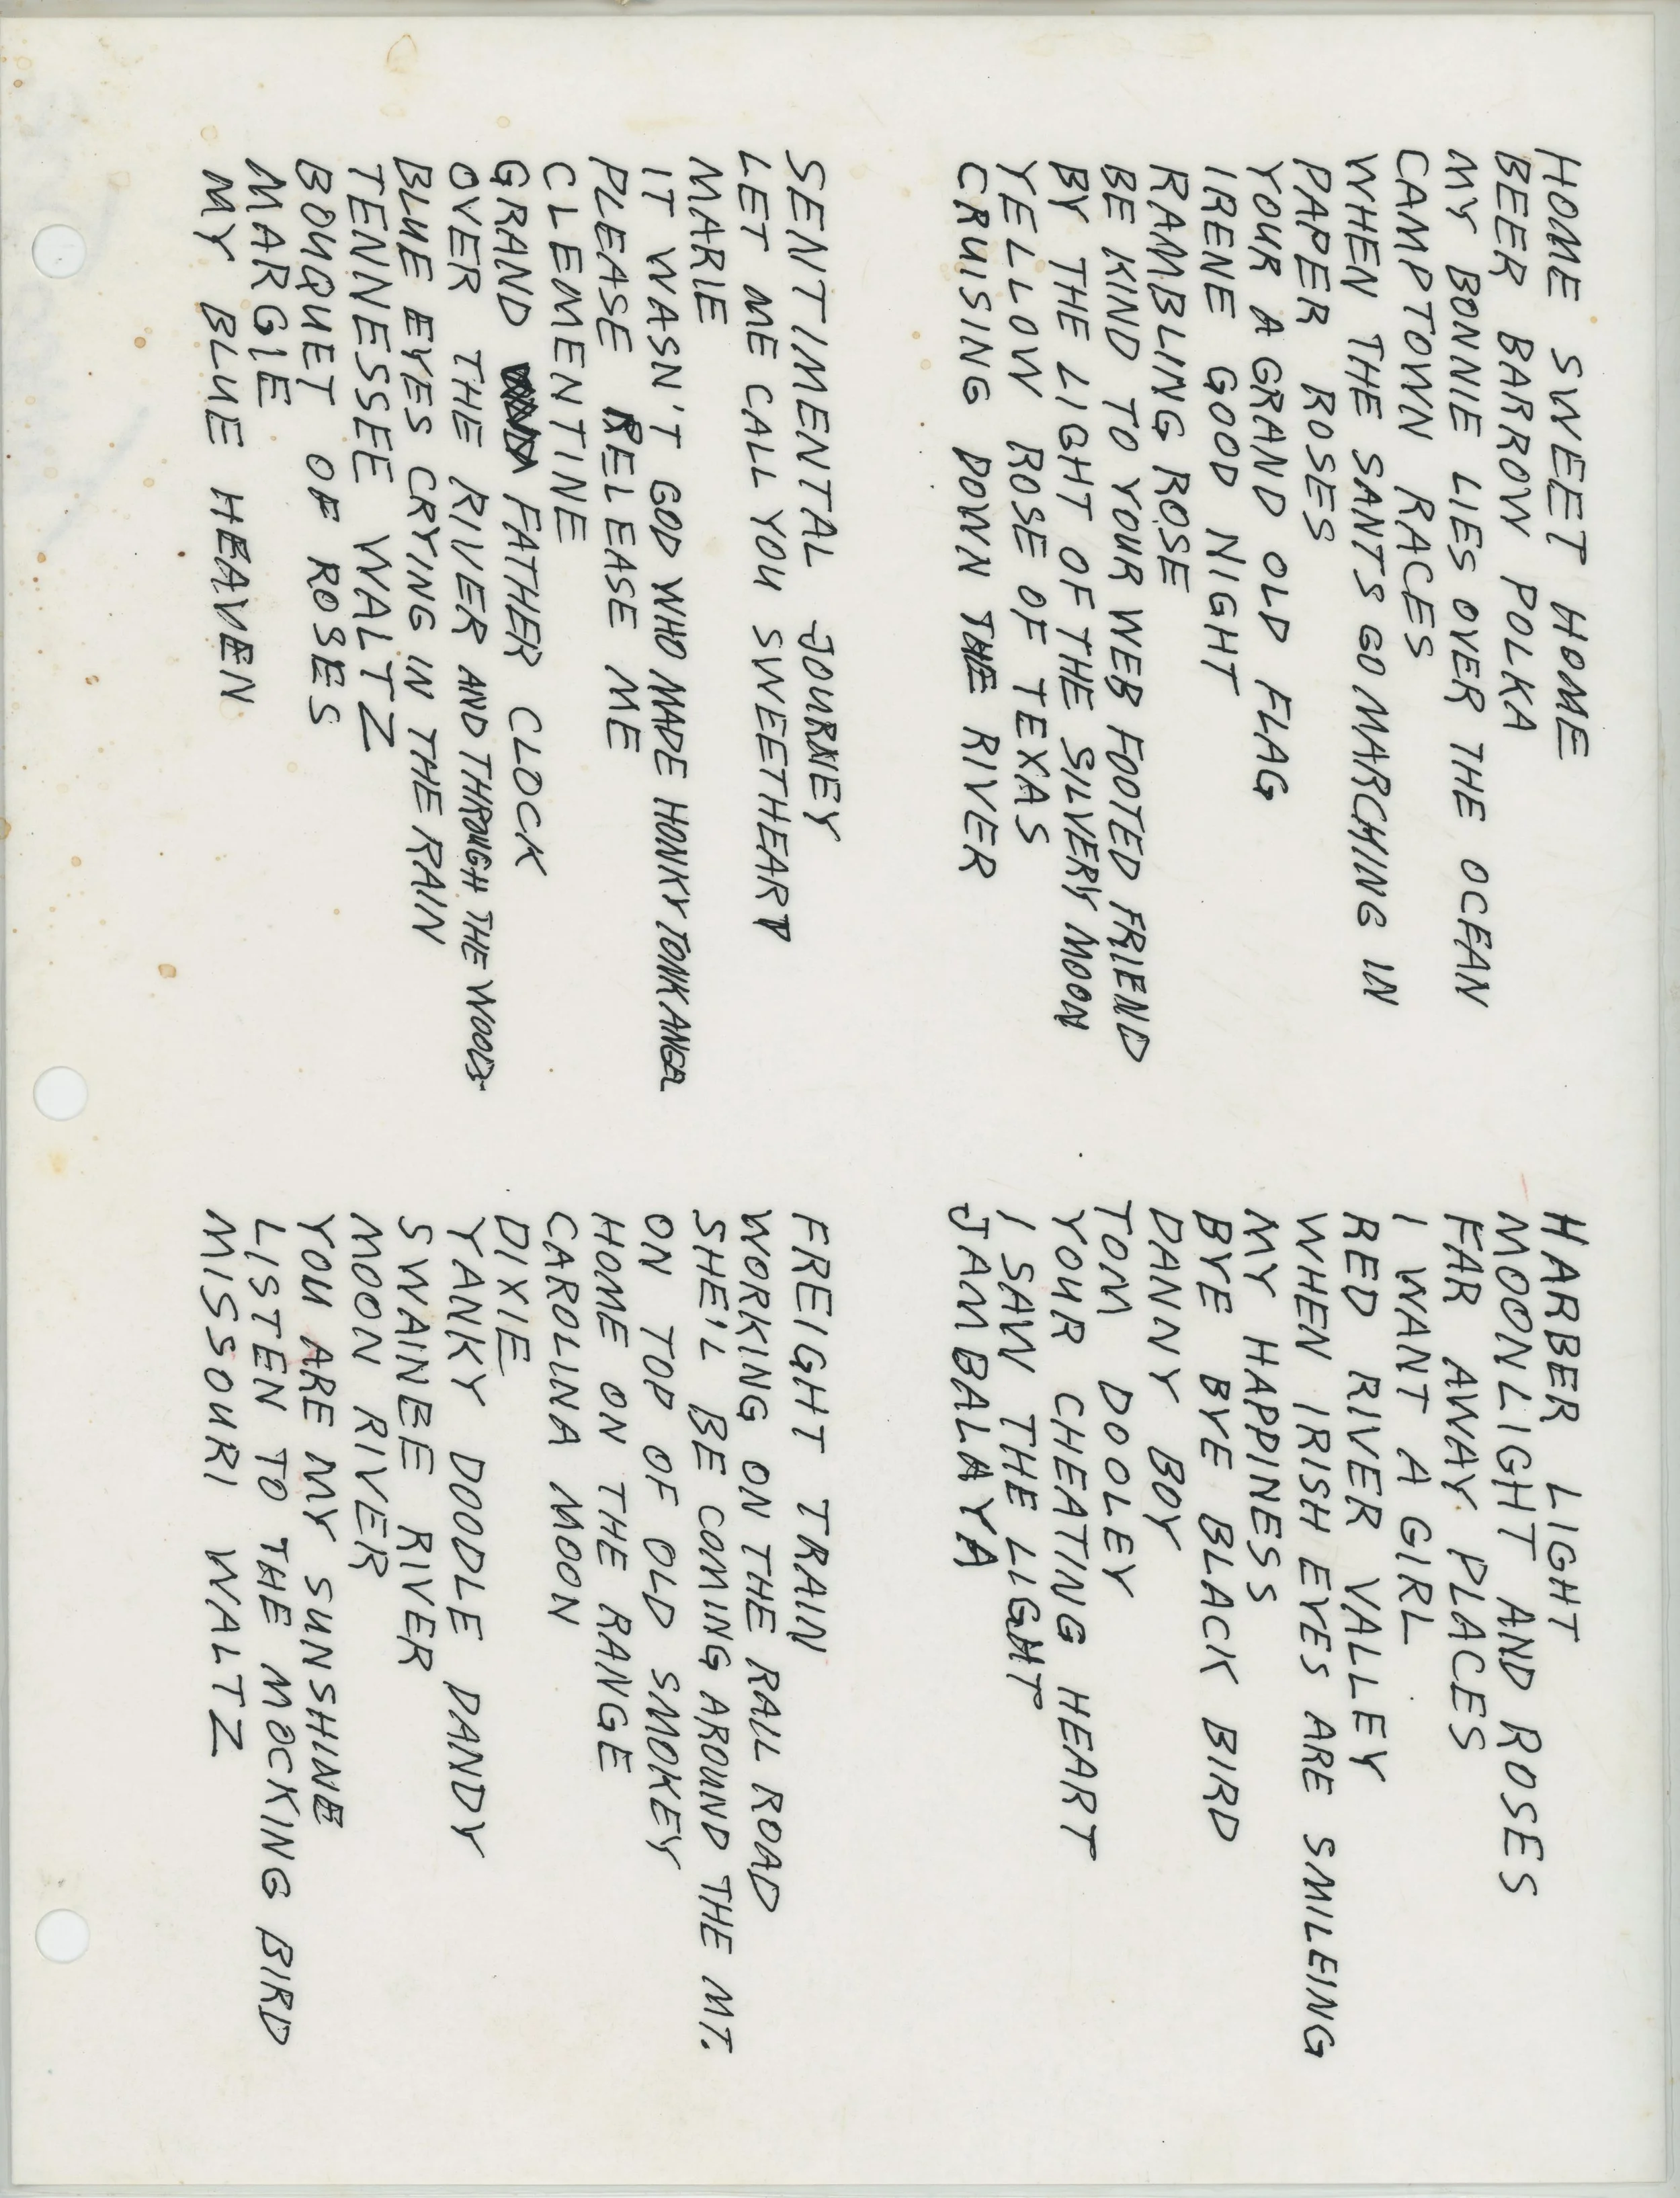 HOME SWEET HOME
BEER BARROW POLKA
MY BONNIE LIES OVER THE OCEAN
CAMPTOWN RACES
WHEN THE SANTS GO MARCHING IN
PAPER ROSES
YOUR A GRAND OLD FLAG
IRENE GOOD NIGHT
RAMBLING ROSE
BE KIND TO YOUR WEB FOOTED FRIEND
BY THE LIGHT OF THE SILVERY MOON
YELLOW ROSE OF TEXAS
CRUISING DOWN THE RIVER
HARBER LIGHT
MOONLIGHT AND ROSES
FAR AWAY PLACES
I WANT A GIRL
RED RIVER VALLEY
WHEN IRISH EYES ARE SMILEING
MY HAPPINESS
BYE BYE BLACK BIRD
DANNY BOY
TOM DOOLEY
YOUR CHEATING HEART
I SAW THE LIGHT
JAMBALAYA
SENTIMENTAL JOURNEY
LET ME CALL YOU SWEETHEART
MARIE
IT WASN'T GOD WHO MADE HONKY TONK
PLEASE RELEASE ME
CLEMENTINE
GRAND FATHER CLOCK
OVER THE RIVER AND THROUGH THE WOODS
BLUE EYES CRYING IN THE RAIN
TENNESSEE WALTZ
BOUQUET OF ROSES
MARGIE
MY BLUE HEAVEN
FREIGHT TRAIN
WORKING ON THE RAIL ROAD
SHE'L BE COMING AROUND THE MT.
ON TOP OF OLD SMOKEY
HOME ON THE RANGE
CAROLINA MOON
DIXIE
YANKY DOODLE DANDY
SWAINEE RIVER
MOON RIVER
YOU ARE MY SUNSHINE
LISTEN TO THE MOCKING BIRD
MISSOURI WALTZ